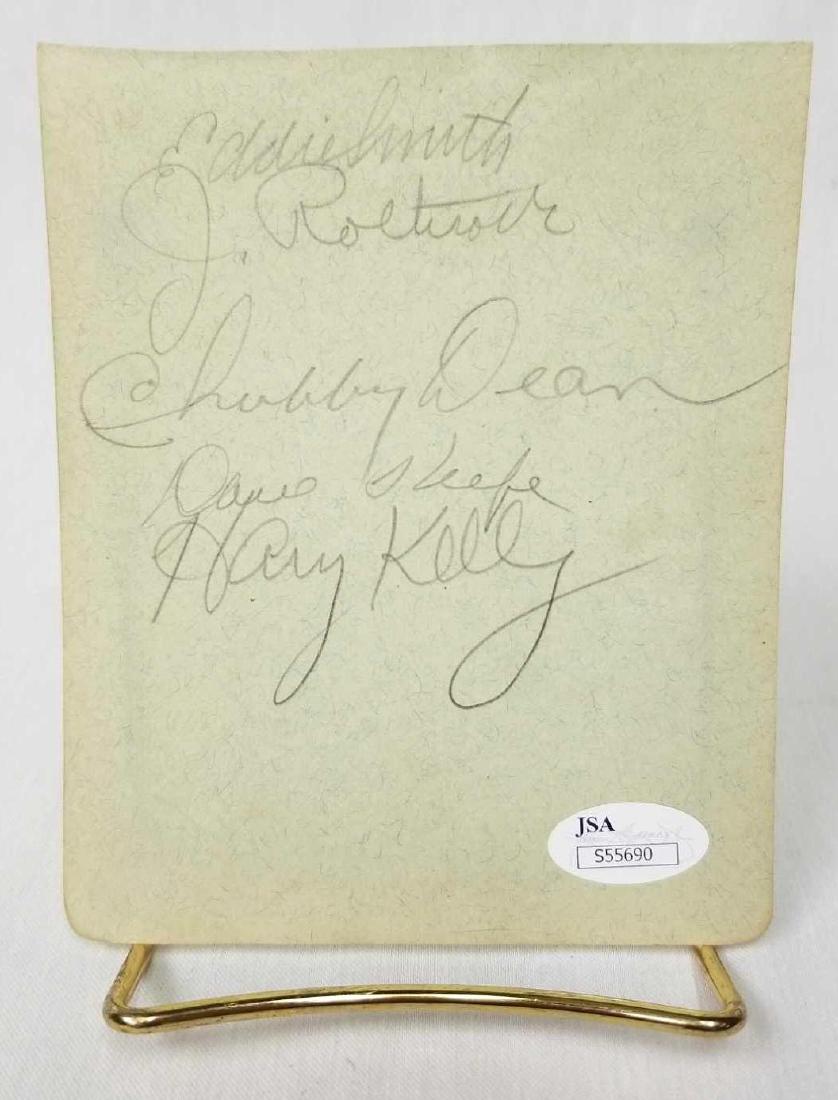 Eddie Smith
J. Rothrock
Chubby Dean
Dave Keefe
Harry Kelly
JSA
S55690